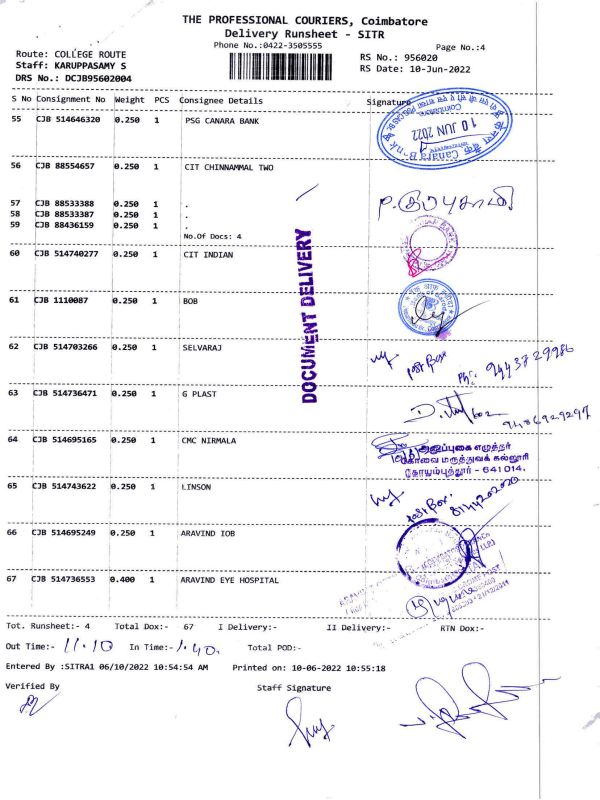 THE PROFESSIONAL COURIERS, Coimbatore
Delivery Runsheet - SITR
Phone No.:0422-3505555
Page No.:4
Route: COLLEGE ROUTE
Staff: KARUPPASAMY S
DRS No.: DCJB95602004
RS No.: 956020
RS Date: 10-Jun-2022
S No Consignment No Weight PCS Consignee Details Signature
55 CJB 514646320 0.250 1 PSG CANARA BANK
10 JUN 2022
56 CJB 88554657 0.250 1 CIT CHINNAMMAL TWO
57 CJB 88533388 0.250 1 .
58 CJB 88533387 0.250 1 .
59 CJB 88436159 0.250 1 .
No.Of Docs: 4
DOCUMENT DELIVERY
60 CJB 514740277 0.250 1 CIT INDIAN
61 CJB 1110087 0.250 1 BOB
62 CJB 514703266 0.250 1 SELVARAJ
Ph: 9443729986
63 CJB 514736471 0.250 1 G PLAST
9486929297
64 CJB 514695165 0.250 1 CMC NIRMALA
அனுப்புகை எழுத்தர்
கோவை மருத்துவக் கல்லூரி
கோயம்புத்தூர் - 641 014.
65 CJB 514743622 0.250 1 LINSON
66 CJB 514695249 0.250 1 ARAVIND IOB
67 CJB 514736553 0.400 1 ARAVIND EYE HOSPITAL
Tot. Runsheet:- 4 Total Dox:- 67 I Delivery:- II Delivery:- RTN Dox:-
Out Time:- 11.10 In Time:- 1.40. Total POD:-
Entered By :SITRA1 06/10/2022 10:54:54 AM Printed on: 10-06-2022 10:55:18
Verified By Staff Signature